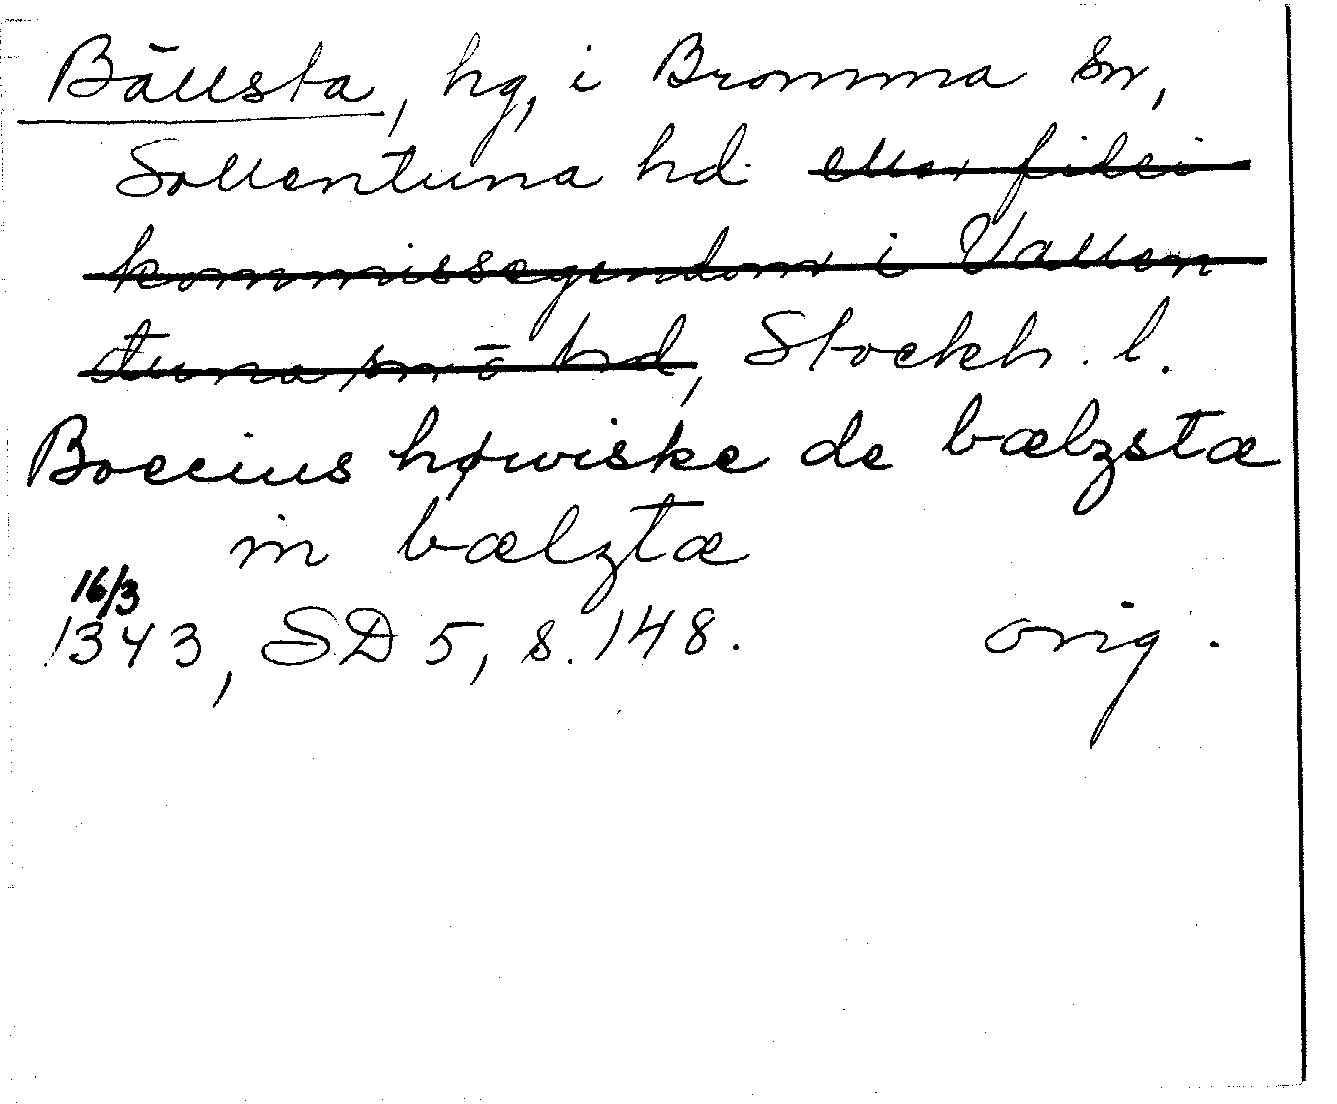 Bällsta, hg, i Bromma sn,
Sollentuna hd. eller fidei
kommissegendom i Vallen
tuna sn o hd, Stockh. l.
Boecius høwiske de bælzstæ
in bælztæ
16/3
1343, SD 5, s. 148. orig.